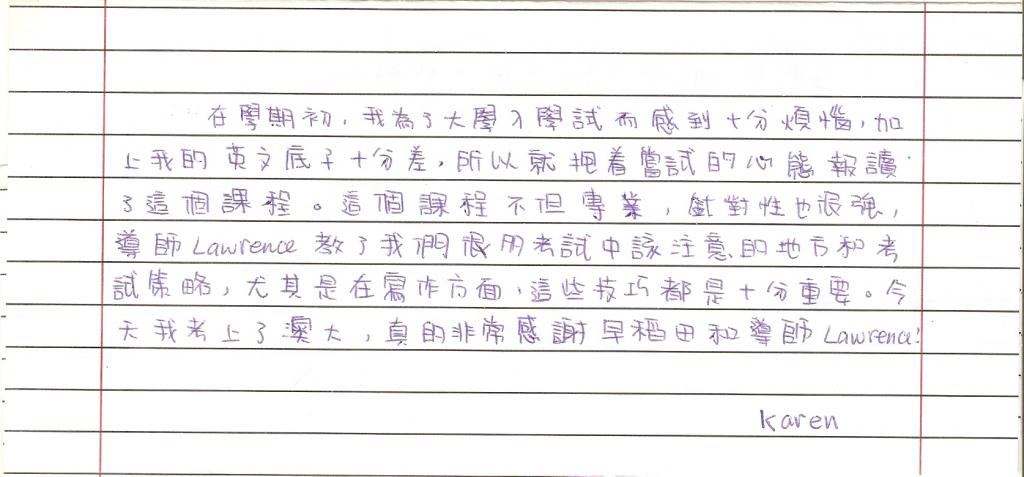 在學期初，我為了大學入學試而感到十分煩惱，加
上我的英文底子十分差，所以就抱着嘗試的心態報讀
了這個課程。這個課程不但專業，針對性也很強，
導師Lawrence教了我們很多考試中該注意的地方和考
試策略，尤其是在寫作方面，這些技巧都是十分重要。今
天我考上了澳大，真的非常感謝早稻田和導師Lawrence!
Karen